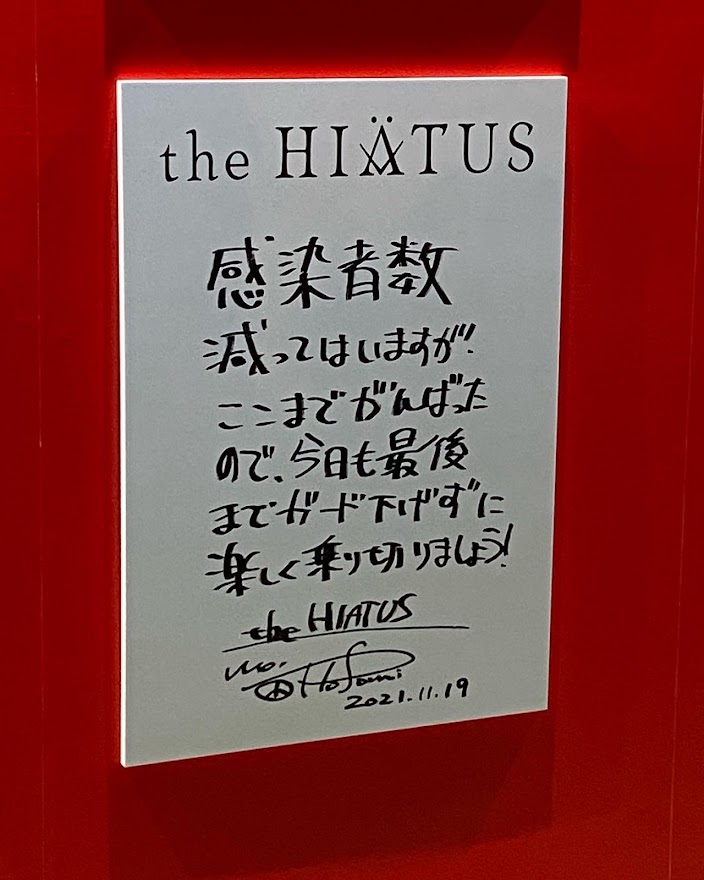 the HIÄTUS
感染者数
減ってはいますが、
ここまでがんばった
ので、今日も最後
までガード下げずに
楽しく乗り切りましょう!
the HIATUS
Hosomi
2021.11.19